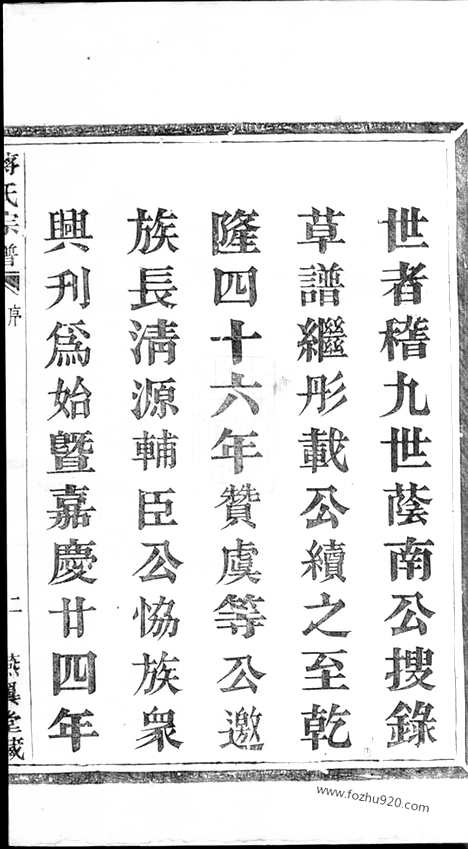 世者稽九世蔭南公搜錄
草譜繼彤載公續之至乾
隆四十六年贊虞等公邀
族長清源輔臣公協族衆
興刋爲始曁嘉慶廿四年
氏宗譜
序
二
燕翼堂藏
www.fozhu920.com